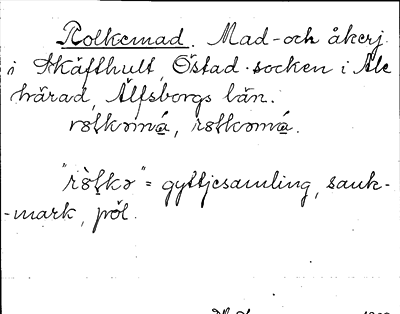 Rolkemad. Mad- och åkerj.
i Skäfthult, Östad socken i Ale
härad, Älfsborgs län.
"= gyttjesamling, sank-
-mark, pöl.